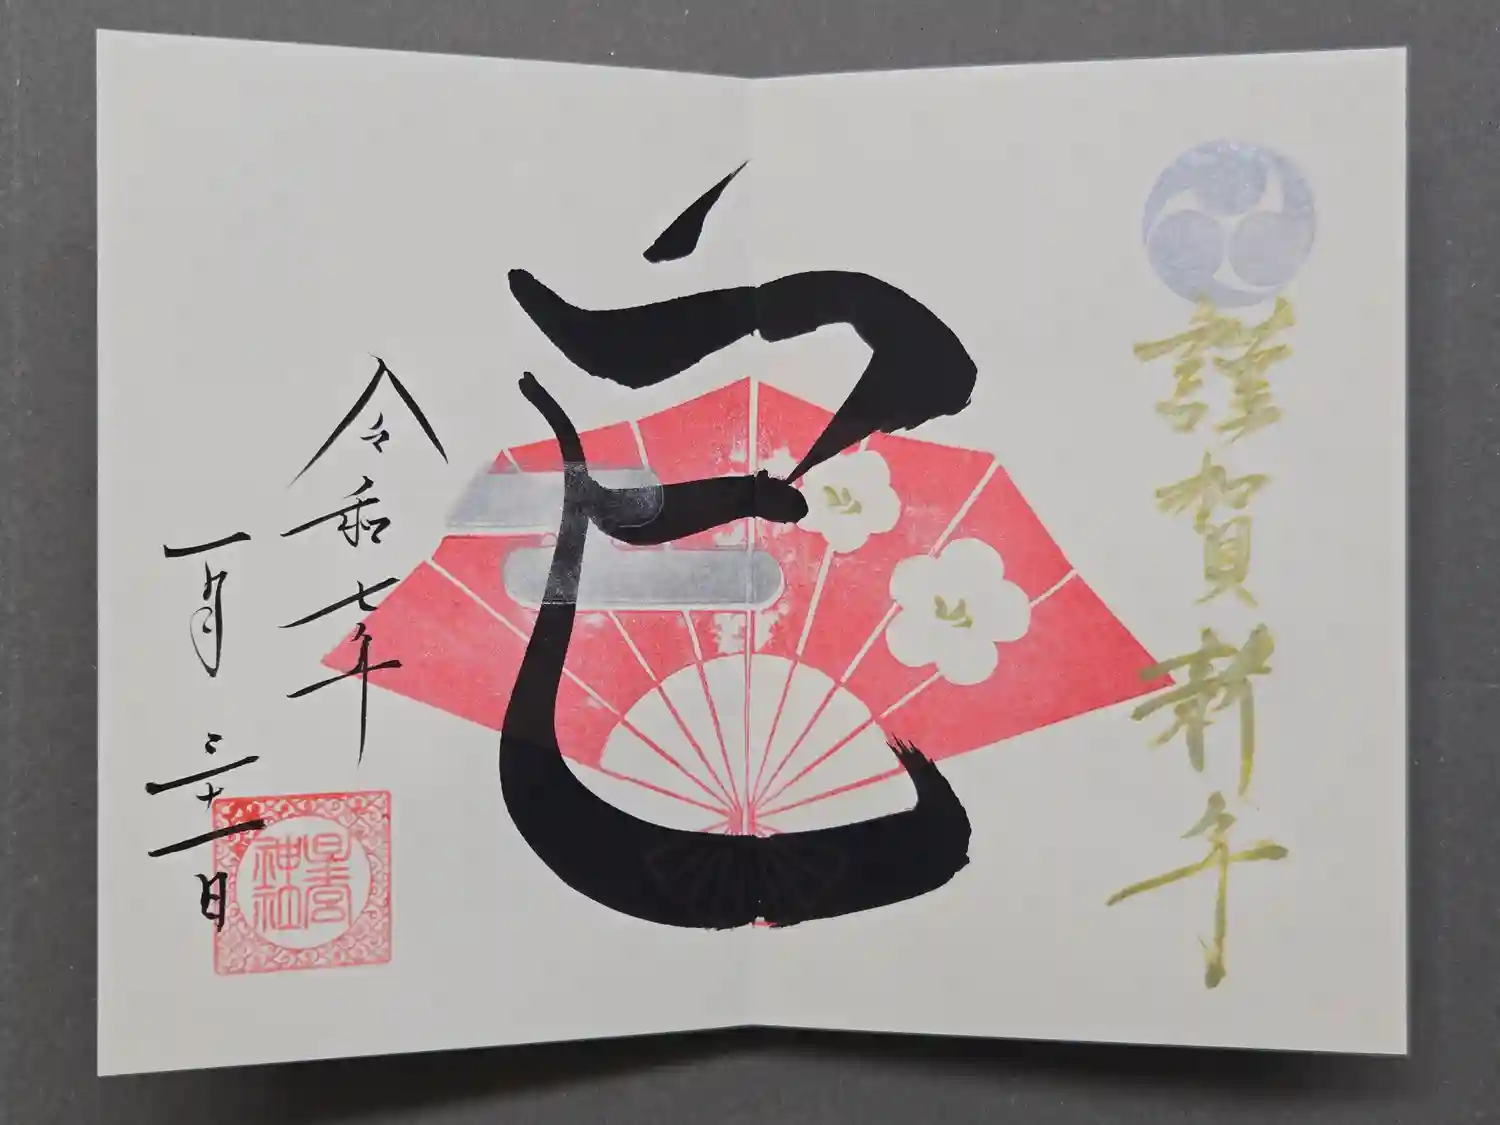 謹賀新年
巳
令和七年
一月三十一日
星宮
神社